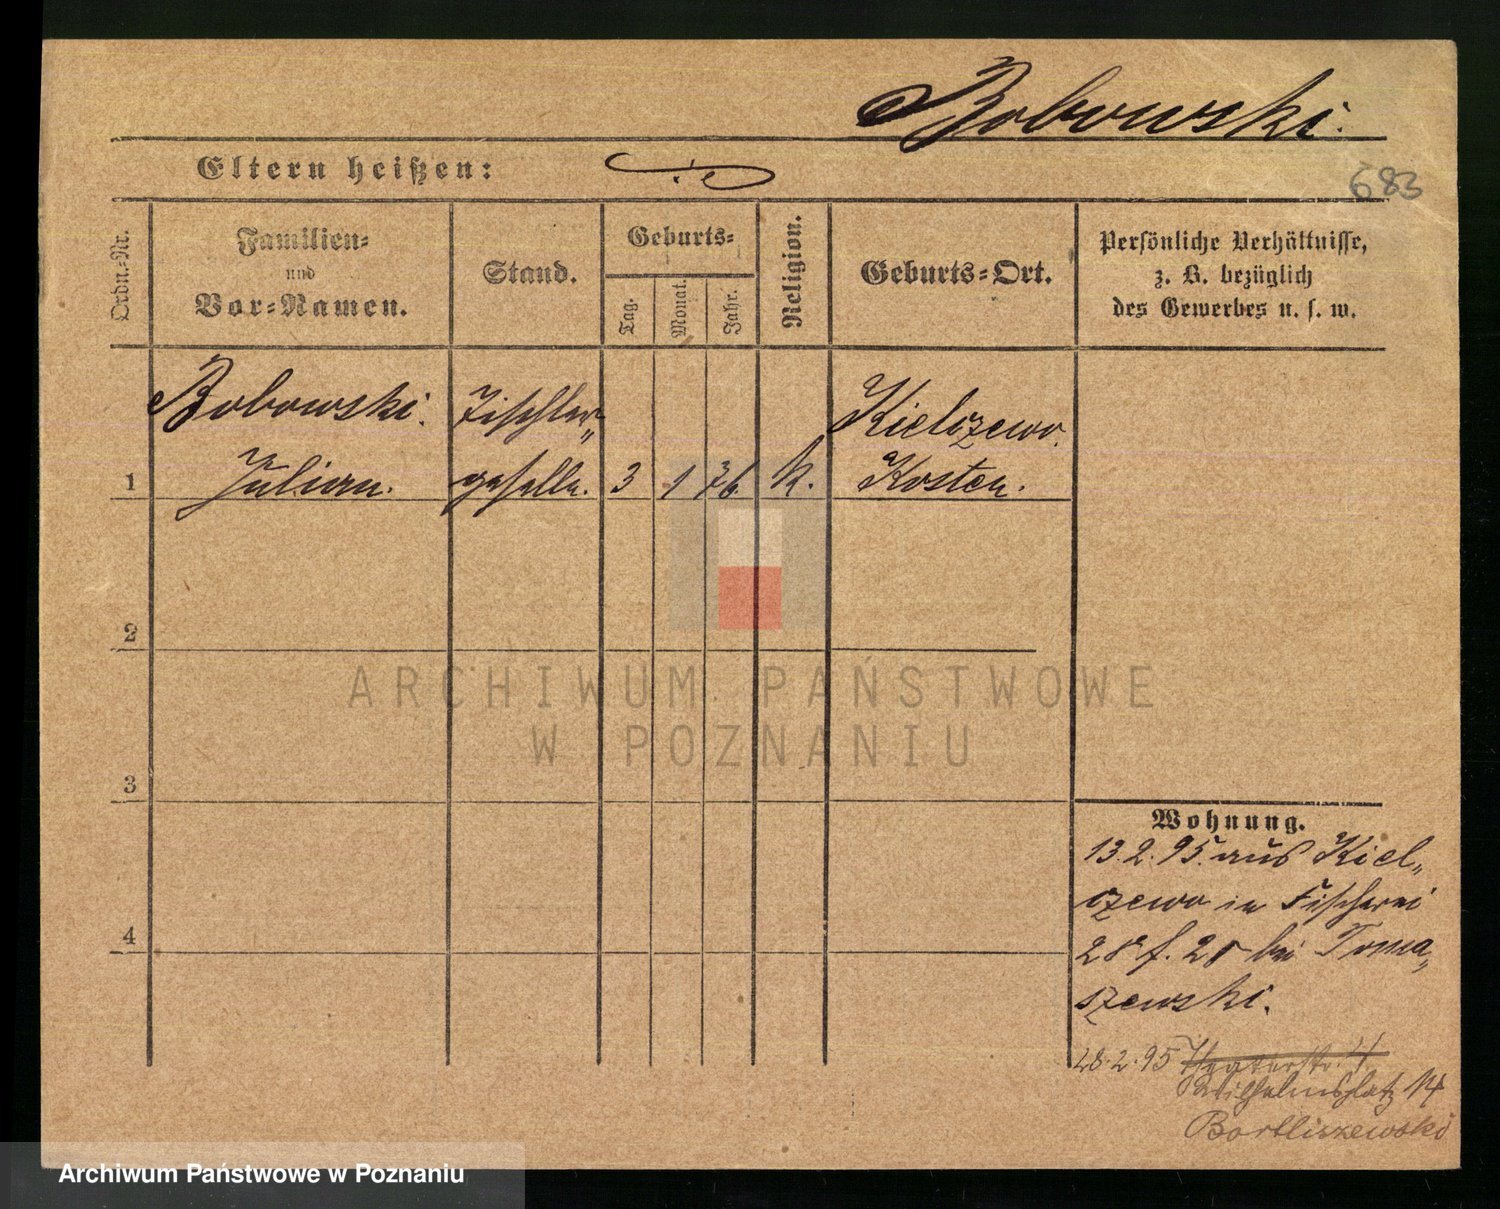 Bobowski.
Eltern heißen:
683
Ordn.-Nr.
Familien-
und
Vor-Namen.
Stand.
Geburts-
Tag.
Monat.
Jahr.
Religion.
Geburts-Ort.
Persönliche Verhältnisse,
z. B. bezüglich
des Gewerbes u. s. w.
Bobowski. Tischler„ Kielczewo.
1 Julian. geselle. 3 1 76. k. Kosten.
2
3
4
Wohnung.
13.2.95. aus Kiel„
czewo in Fischerei
28 f. 28 bei Toma„
szewski.
28.2.95 Theaterstr. 4
Wilhelmsplatz 14
Bartliszewski
ARCHIWUM PAŃSTWOWE
W POZNANIU
Archiwum Państwowe w Poznaniu